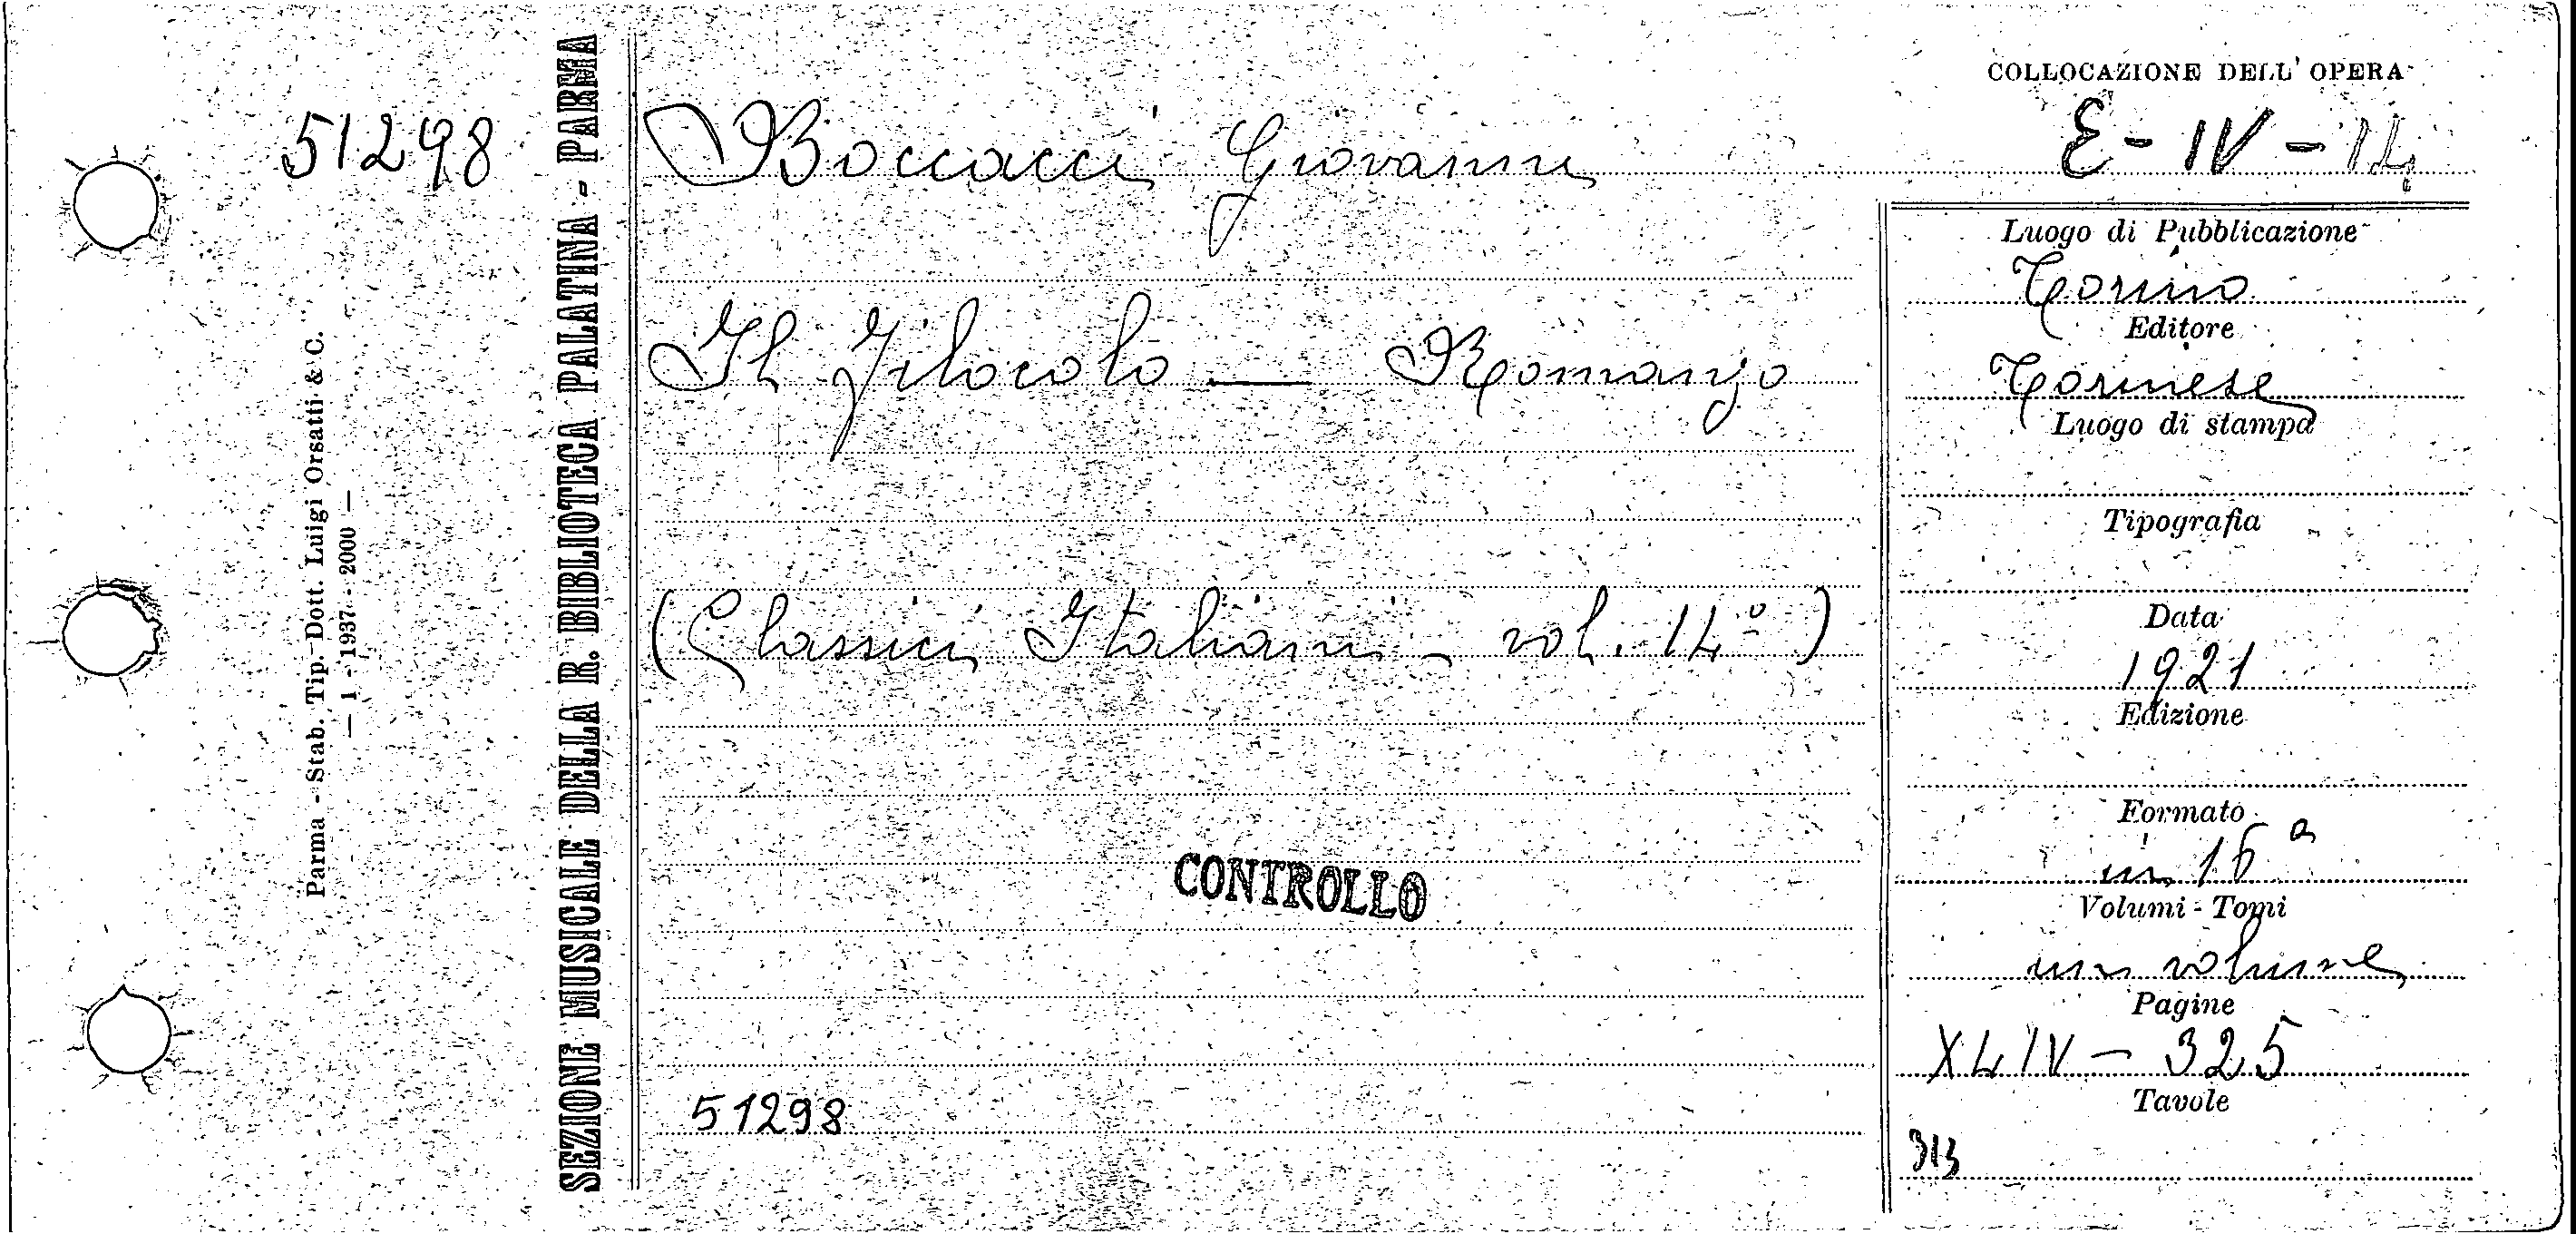 COLLOCAZIONE DELL' OPERA
E - IV - 14
51298
Boccacci Giovanni
Il Filocolo — Romanzo
(Classici Italiani - vol. 14º)
CONTROLLO
51298
Luogo di Pubblicazione
Torino
Editore
Torinese
Luogo di stampa
Tipografia
Data
1921
Edizione
Formato
in 16º
Volumi - Tomi
un volume
Pagine
XLIV - 325
Tavole
313
SEZIONE MUSICALE DELLA R. BIBLIOTECA PALATINA - PARMA
Parma - Stab. Tip. Dott. Luigi Orsatti & C.
— 1 - 1937 - 2000 —